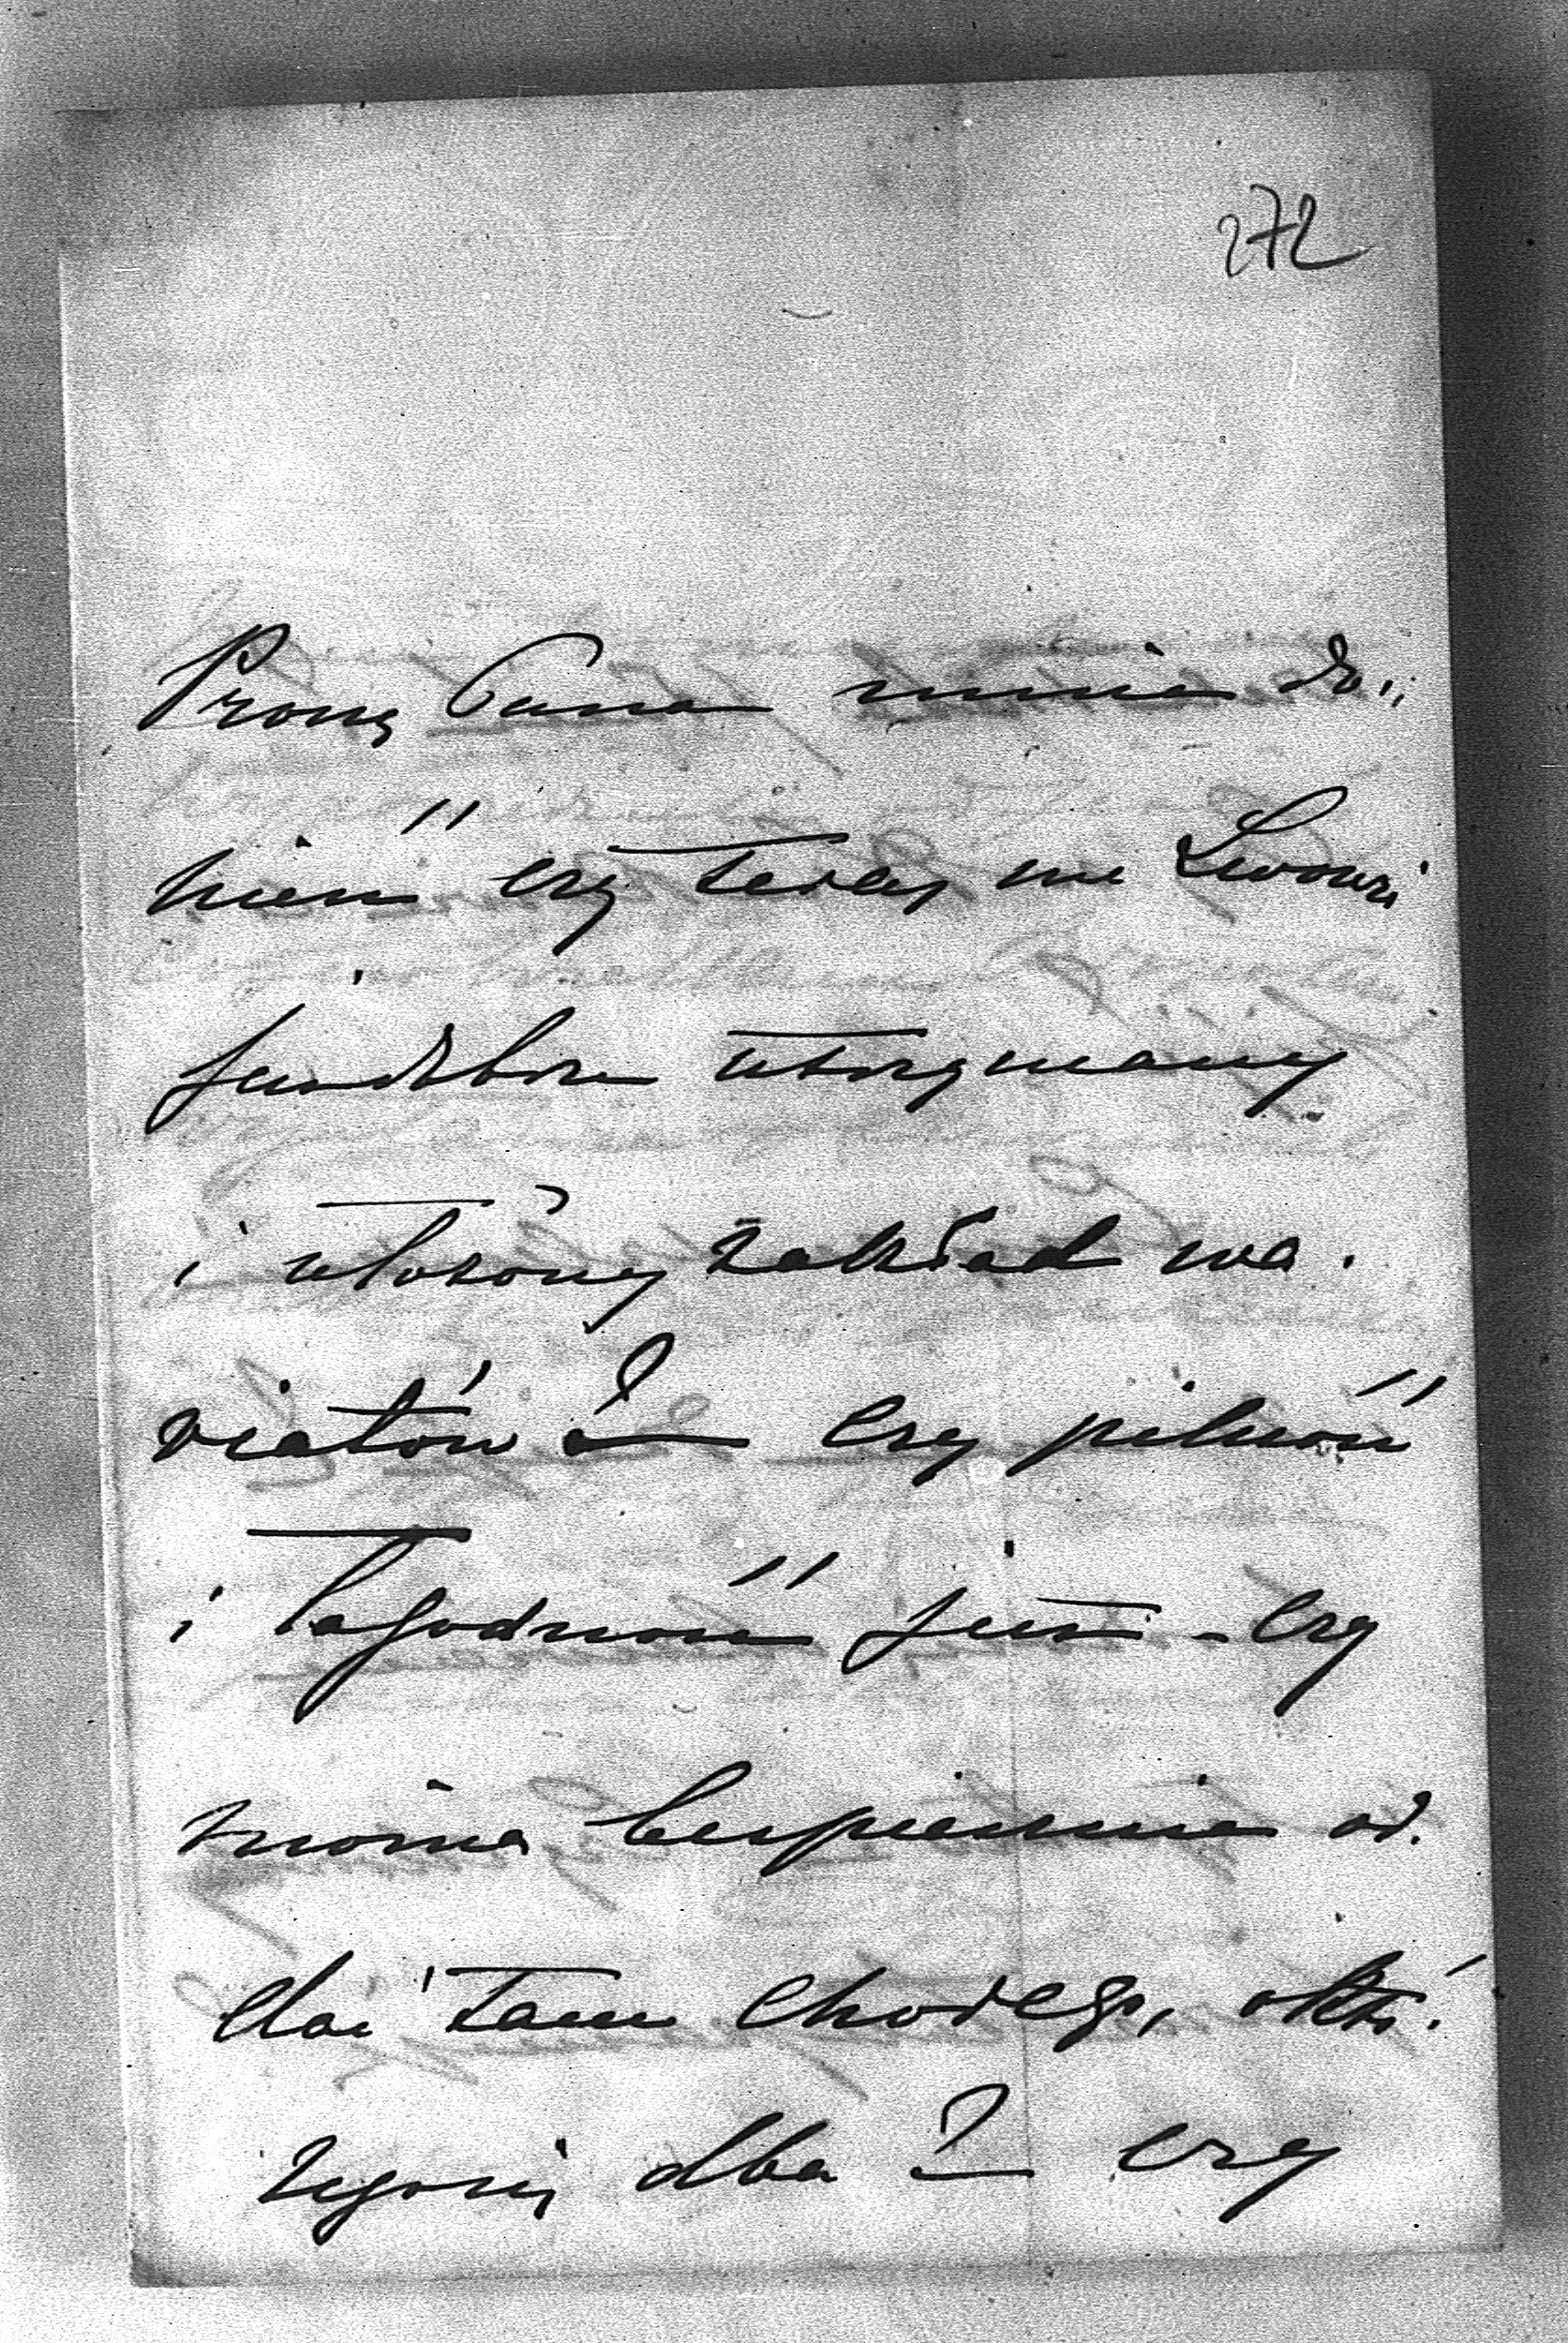 272
Proszę Pana mnie do„
nieść czy teraz we Lwowi
jest dobrze utrzymany
i ułożony zakład wa.
riatów? Czy pilność
i łagodność jest – czy
można bezpiecznie od.
dać tam chorego, o któ.
rego się dba? czy